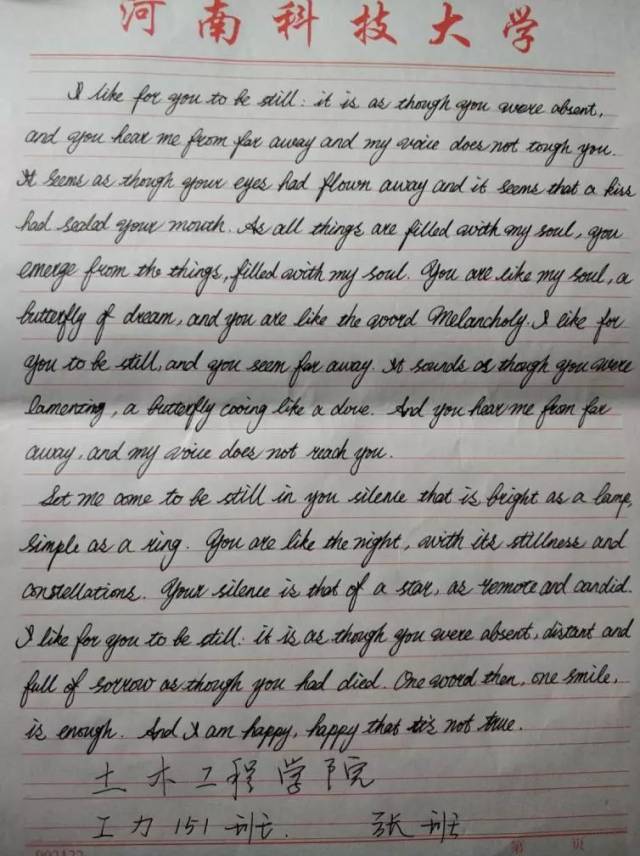 河南科技大学
I like for you to be still: it is as though you were absent,
and you hear me from far away and my voice does not tough you.
It seems as though your eyes had flown away and it seems that a kiss
had sealed your mouth. As all things are filled with my soul, you
emerge from the things, filled with my soul. You are like my soul, a
butterfly of dream, and you are like the word Melancholy. I like for
you to be still, and you seem far away. It sounds as though you were
lamenting, a butterfly cooing like a dove. And you hear me from far
away, and my voice does not reach you.
Let me come to be still in you silence that is bright as a lamp,
simple as a ring. You are like the night, with its stillness and
constellations. Your silence is that of a star, as remote and candid.
I like for you to be still: it is as though you were absent, distant and
full of sorrow as though you had died. One word then, one smile,
is enough. And I am happy, happy that it's not true.
土木工程学院
工力151班. 张班
第 页